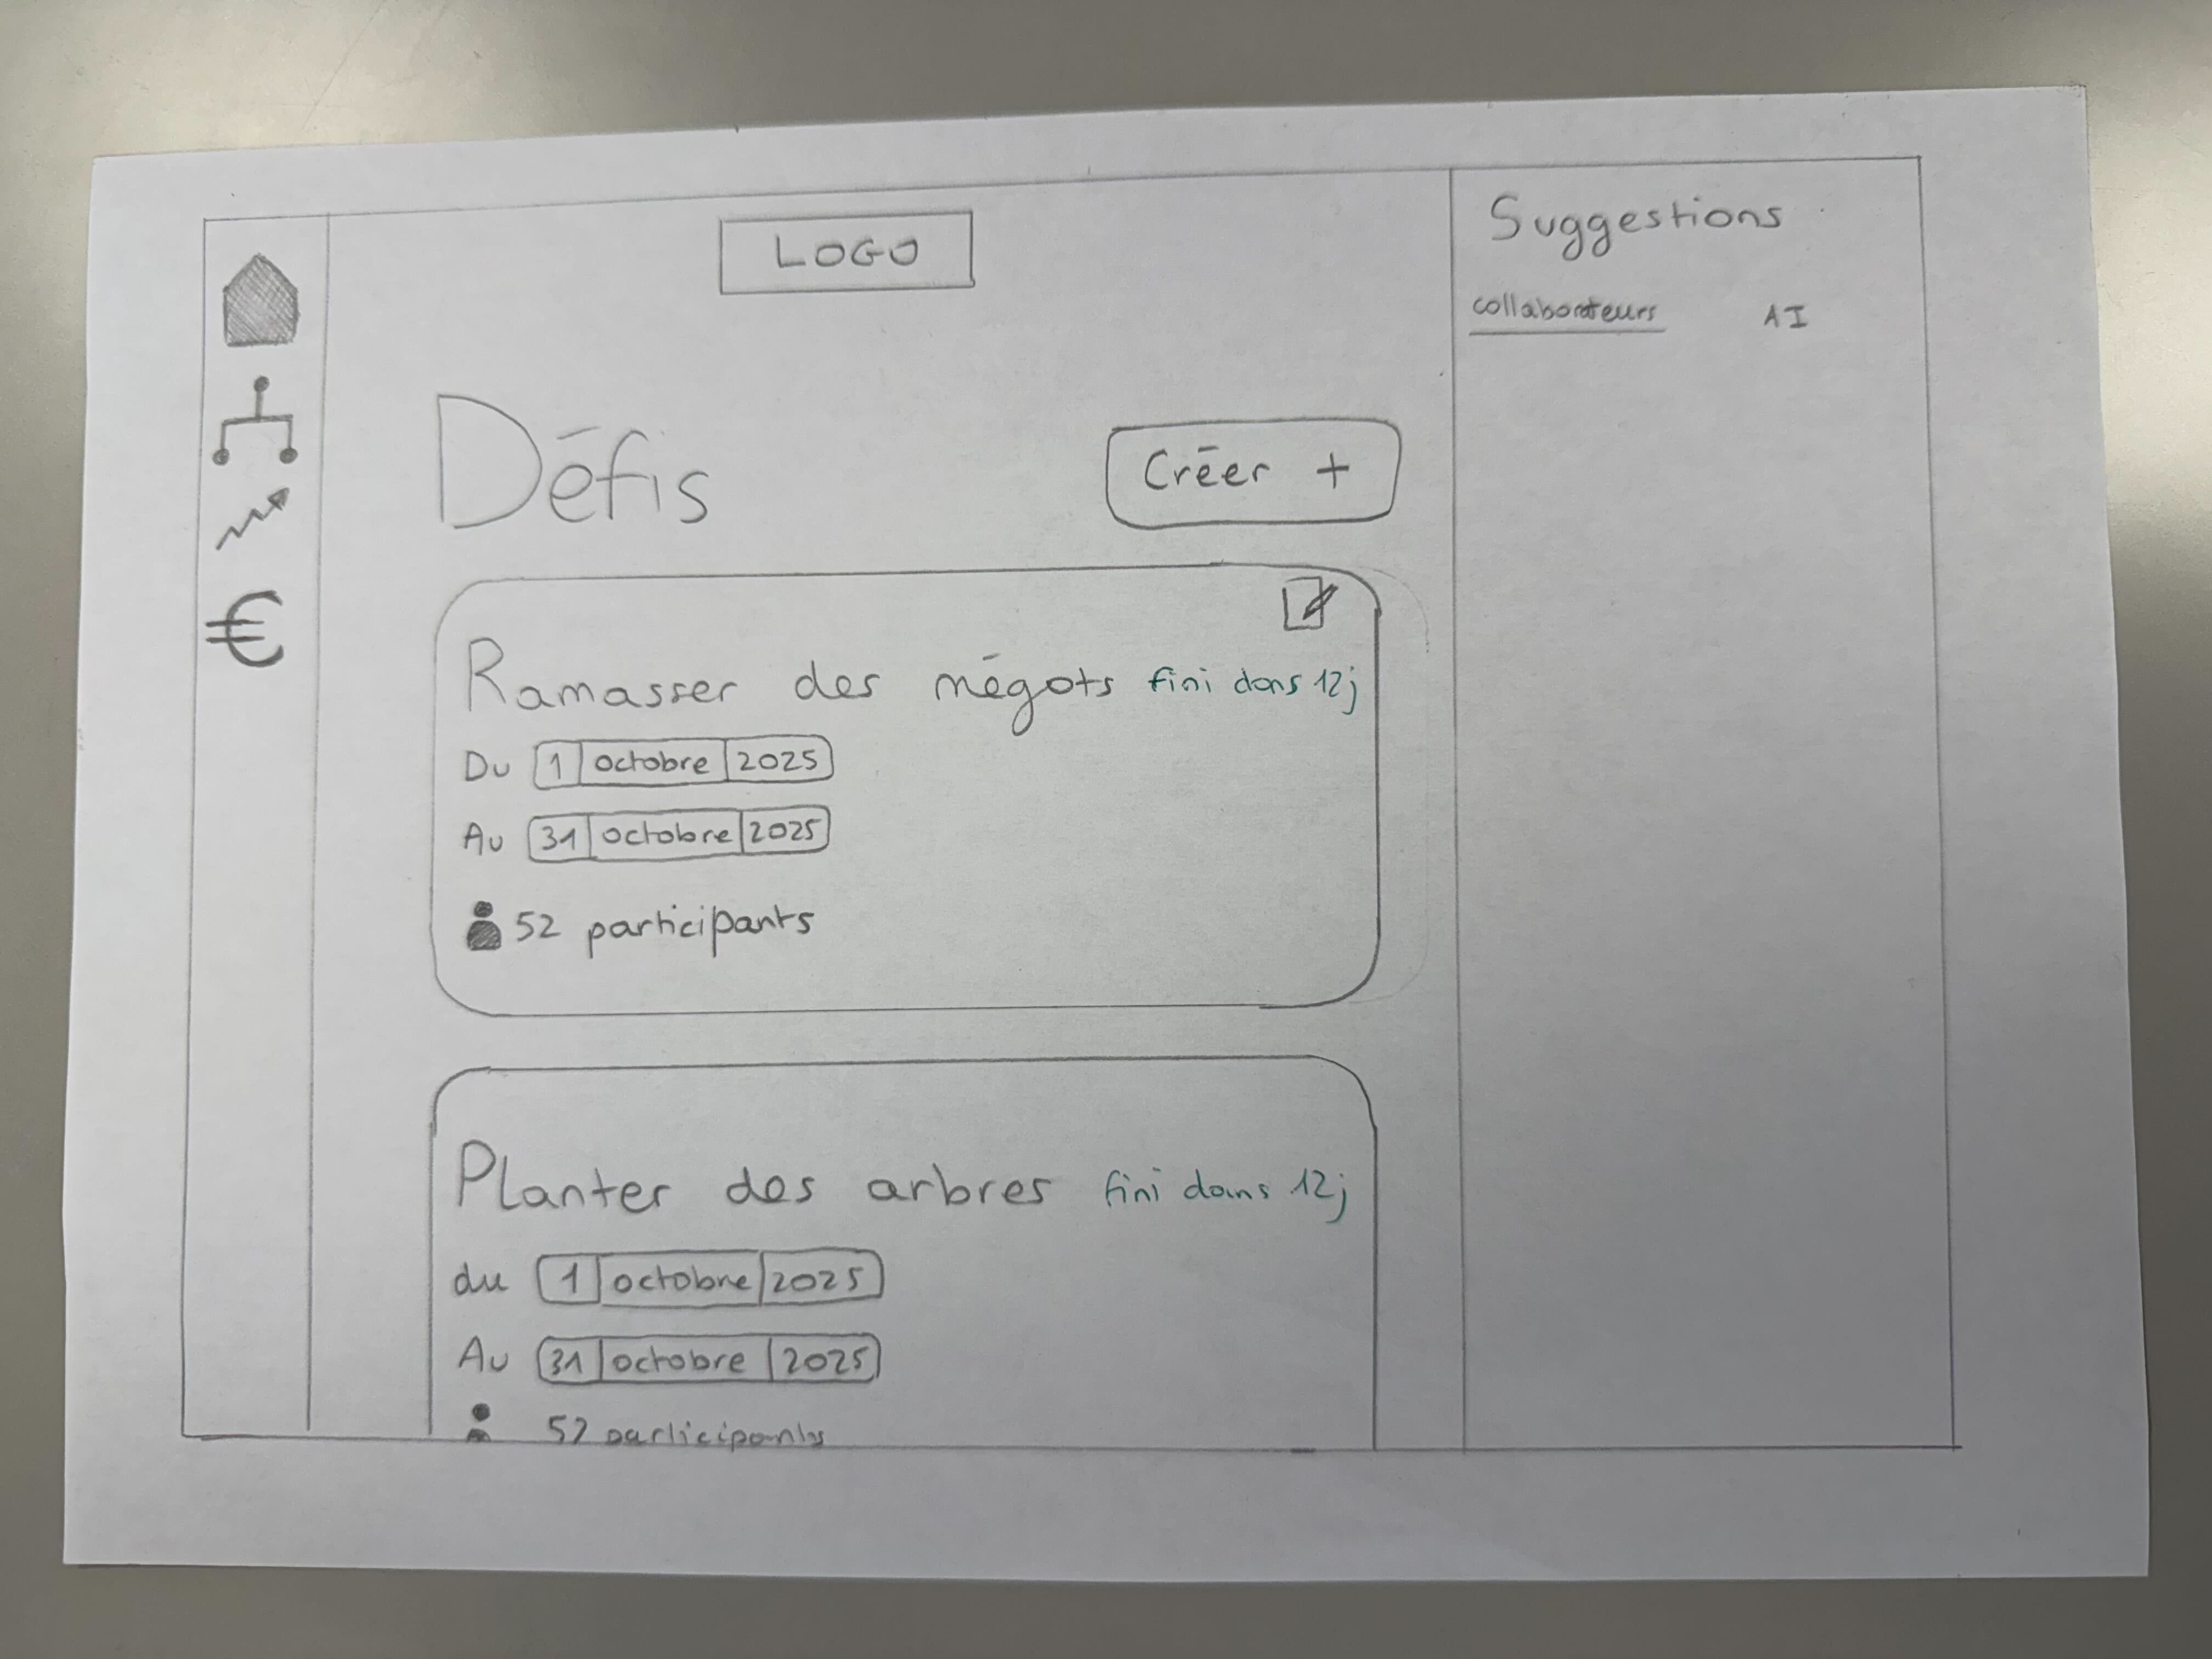 LOGO
Défis
Créer +
Ramasser des mégots fini dans 12j
Du 1 octobre 2025
Au 31 octobre 2025
52 participants
Planter des arbres fini dans 12j
du 1 octobre 2025
Au 31 octobre 2025
52 participants
€
Suggestions
collaborateurs AI